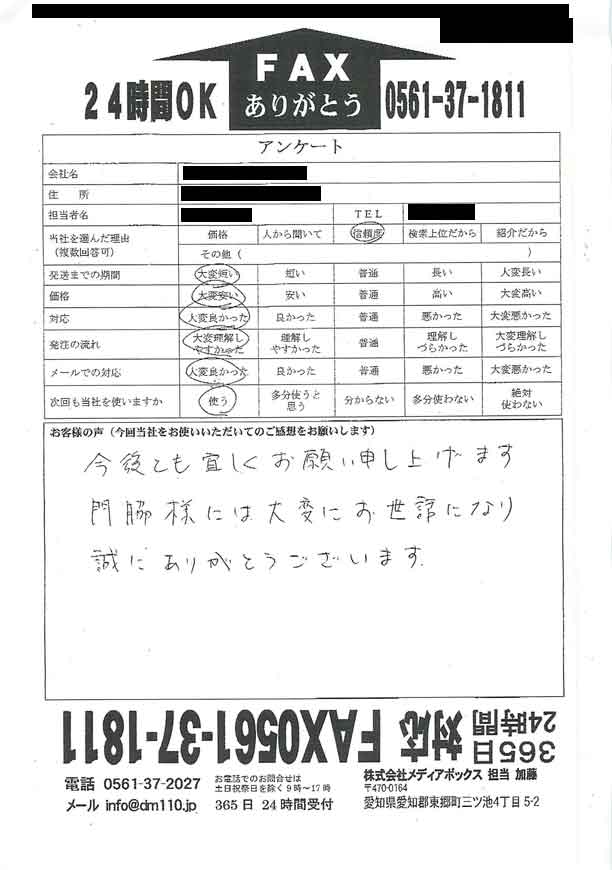 24時間OK
FAX
ありがとう
0561-37-1811
アンケート
会社名
住 所
担当者名 TEL
当社を選んだ理由
(複数回答可)
価格 人から聞いて 信頼度 検索上位だから 紹介だから
その他( )
発送までの期間 大変短い 短い 普通 長い 大変長い
価格 大変安い 安い 普通 高い 大変高い
対応 大変良かった 良かった 普通 悪かった 大変悪かった
発注の流れ 大変理解しやすかった 理解しやすかった 普通 理解しづらかった 大変理解しづらかった
メールでの対応 大変良かった 良かった 普通 悪かった 大変悪かった
次回も当社を使いますか 使う 多分使うと思う 分からない 多分使わない 絶対使わない
お客様の声(今回当社をお使いいただいてのご感想をお願いします)
今後とも宜しくお願い申し上げます
門脇様には大変にお世話になり
誠にありがとうございます.
365日
24時間
対応 FAX0561-37-1811
電話 0561-37-2027
お電話でのお問合せは
土日祝祭日を除く9時~17時
株式会社メディアボックス 担当 加藤
〒470-0164
メール info@dm110.jp
365日 24時間受付
愛知県愛知郡東郷町三ツ池4丁目5-2